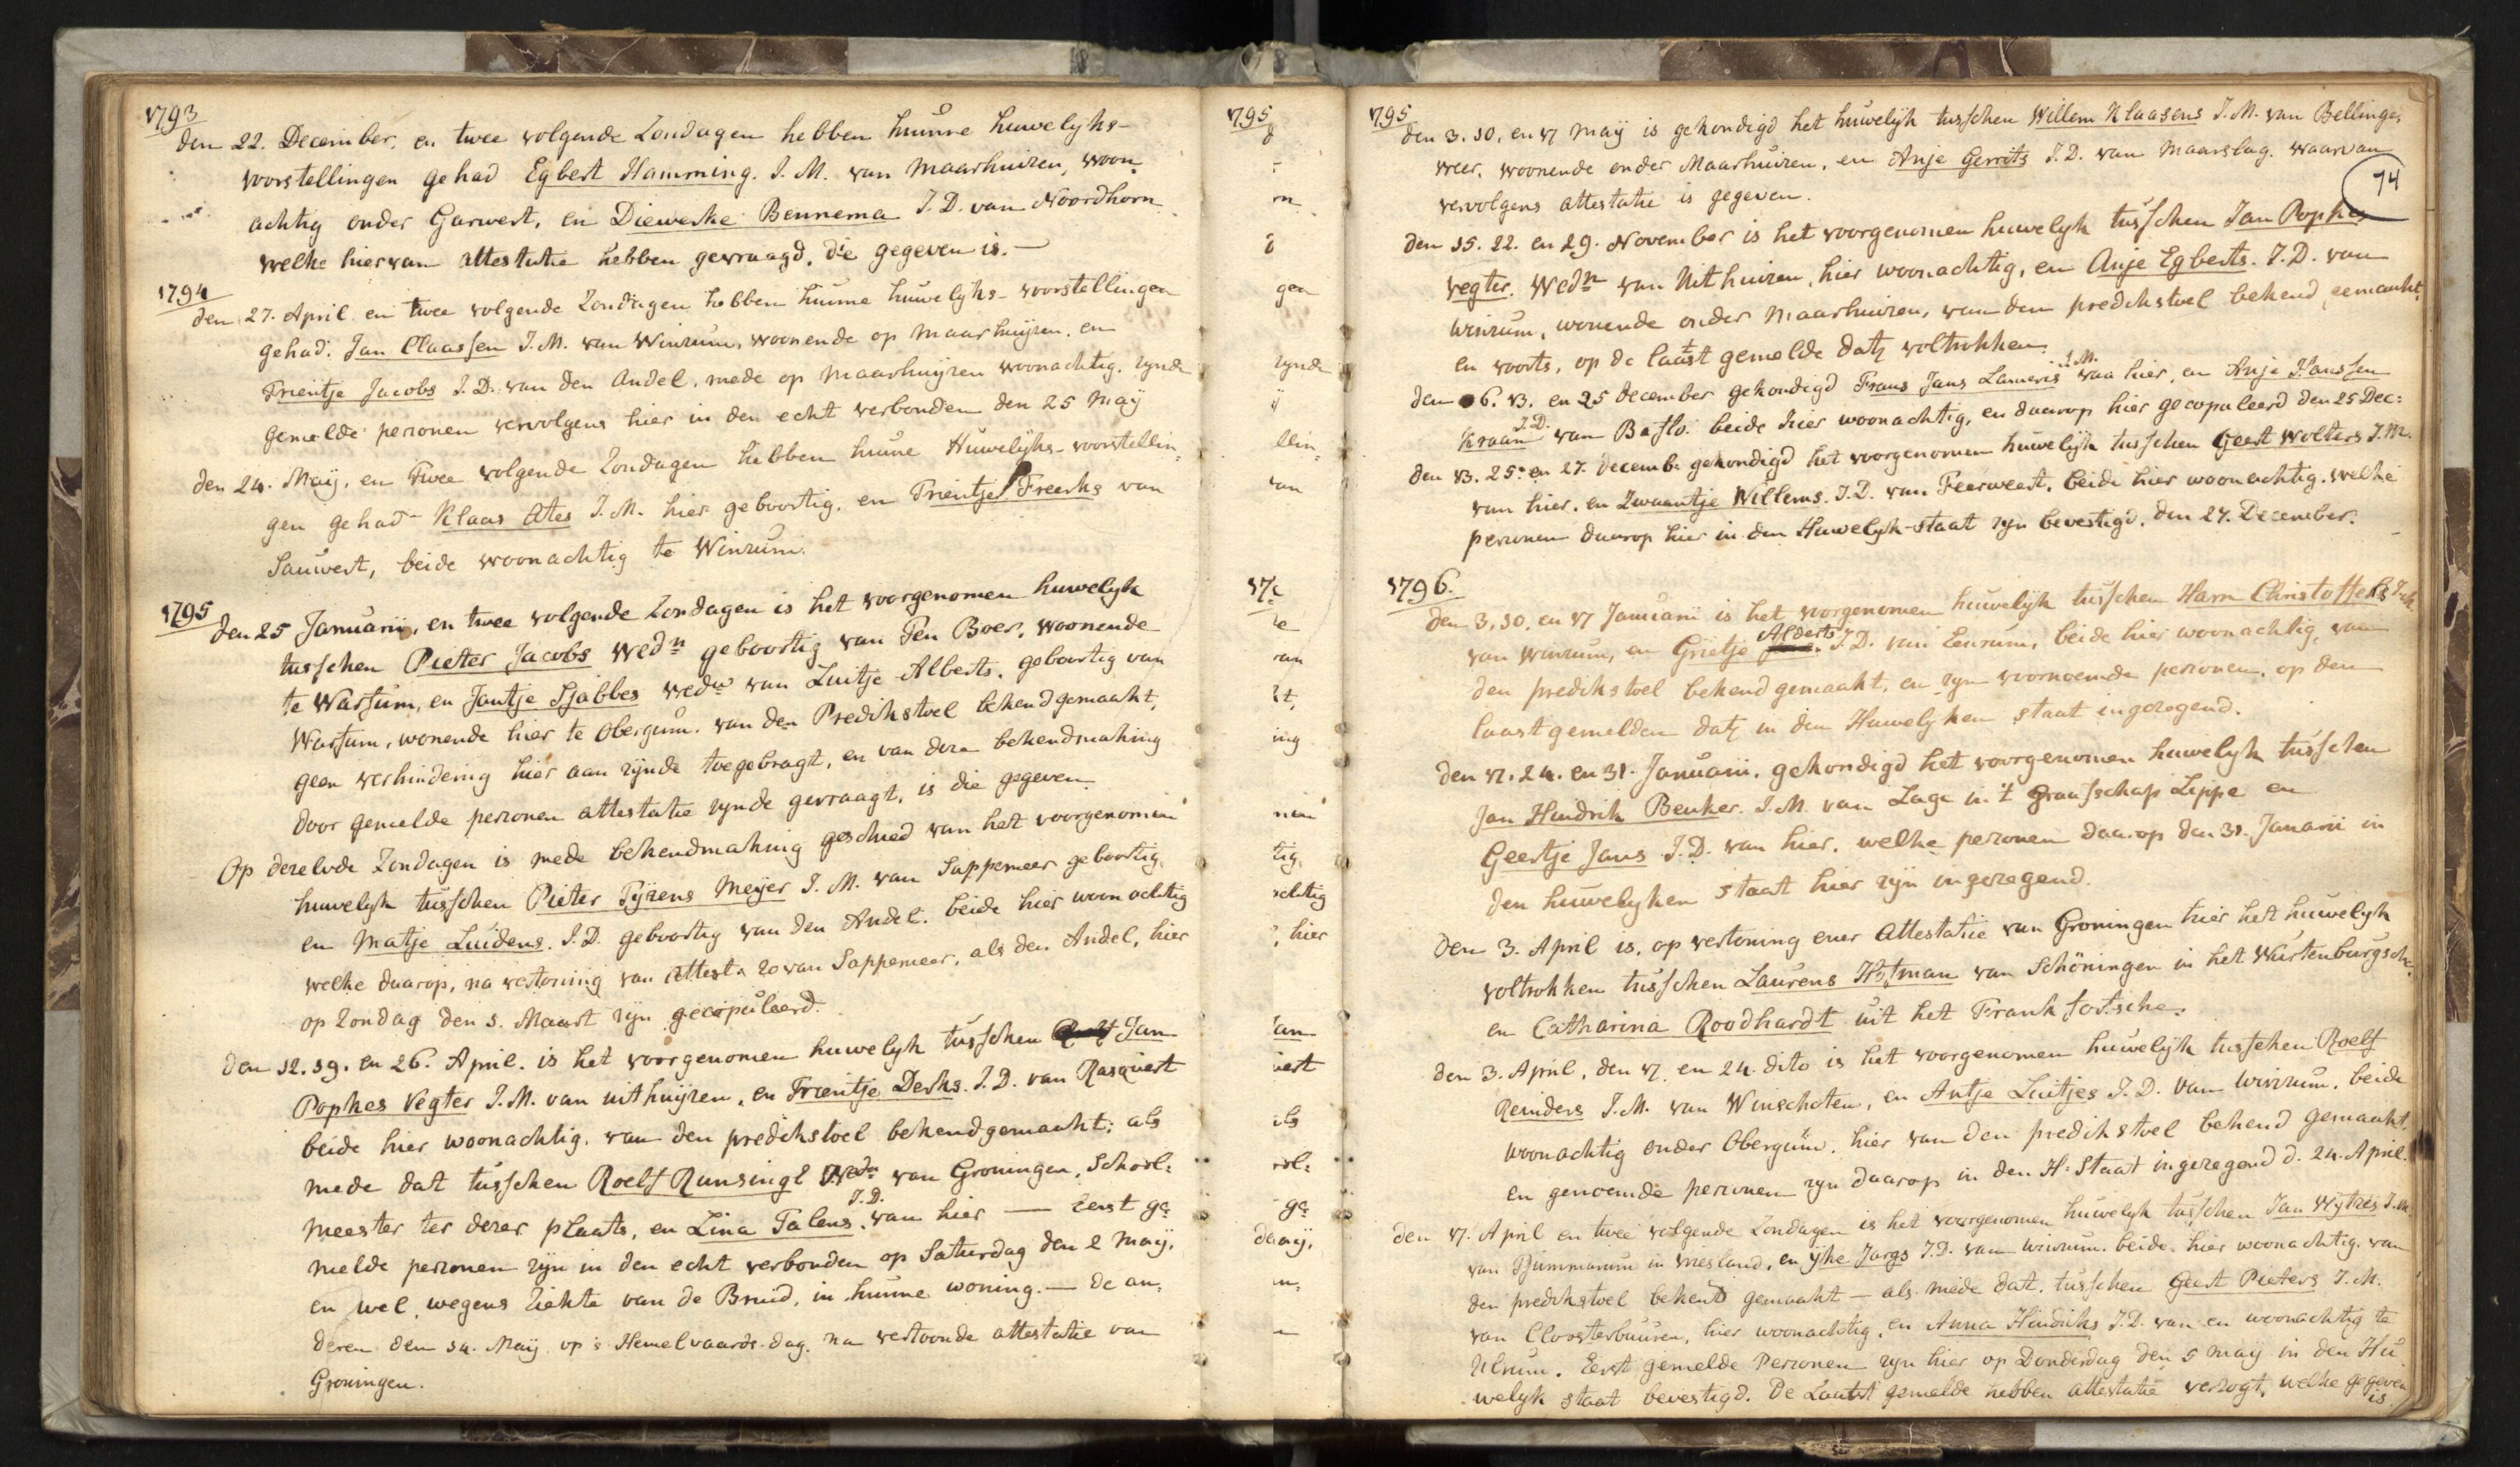 1793
den 22. December, en twee volgende Zondagen hebben hunne huwelyks-
voorstellingen gehad Egbert Hamming. J. M. van Maarhuizen, woon-
achtig onder Garwert, en Dieweske Bennema J. D. van Noordhorn
welke hiervan attestatie hebben gevraagd, die gegeven is. —
1794
den 27. April en twee volgende Zondagen hebben hunne huwelyks-voorstellingen
gehad. Jan Claassen J. M. van Winzum, woonende op Maarhuyzen, en
Trientje Jacobs J. D. van den Andel, mede op Maarhuyzen woonachtig. zynde
gemelde personen vervolgens hier in den echt verbonden den 25 Maÿ
den 24. Maÿ, en Twee volgende Zondagen hebben hunne Huwelyks-voorstellin-
gen gehad Klaas Ates J. M. hier geboortig, en Trientje Freerks van
Sauwert, beide woonachtig te Winzum.
1795
den 25 Januarii, en twee volgende Zondagen is het voorgenomen huwelyk
tusschen Pieter Jacobs Wedn geboortig van Ten Boer, woonende
te Warfum, en Jantje Sjabbes wedw van Luitje Alberts, geboortig van
Warfum, wonende hier te Obergum. van den Predikstoel bekend gemaakt,
geen verhindering hier aan zijnde toegebragt, en van deze bekendmaking
door gemelde personen attestatie zynde gevraagt, is die gegeven.
Op dezelvde Zondagen is mede bekendmaking geschied van het voorgenomen
huwelyk tusschen Pieter Tyzens Meijer J. M. van Sappemeer geboortig,
en Matje Luidens. J. D. geboortig van den Andel. beide hier woonachtig
welke daarop, na vertoning van attest: zo van Sappemeer, als den Andel, hier
op Zondag den 1. Maart zyn gecopuleerd.
den 12. 19. en 26. April. is het voorgenomen huwelyk tusschen Jan
Popkes Vegter J. M. van uithuyzen, en Trientje Derks. J. D. van Rasquert
beide hier woonachtig. van den predikstoel bekendgemaakt; als
mede dat tusschen Roelf Runsingh Wedn van Groningen, School-
meester ter dezer plaats, en Lina Talens J. D. van hier — Eerst ge-
melde personen zyn in den echt verbonden op Saturdag den 2 Maÿ,
en wel, wegens ziekte van de Bruid, in hunne woning. — de an-
deren den 14. Maÿ op 's Hemelvaards-dag. na vertoonde attestatie van
Groningen.
1795
d
rn
gen
zynde
ÿ
llin-
van
17
van
kt,
ing
tig,
achtig
, hier
Jan
uert
als
ool-
ge-
1795
den 3. 10. en 17 Maÿ is gekondigd het huwelyk tusschen Willem Klaasens J. M. van Bellinge-
weer, woonende onder Maarhuizen, en Anje Gerrits J. D. van Maarslag. waarvan
vervolgens attestatie is gegeven.
74
den 15. 22. en 29. November is het voorgenomen huwelyk tusschen Jan Popkes
Vegter. Wedn van Uithuizen, hier woonachtig, en Anje Egberts. J. D. van
Winzum, wonende onder Maarhuizen, van den predikstoel bekend gemaakt,
en voorts, op de laatst gemelde datz voltrokken.
den 6. 13. en 25 December gekondigd Frans Jans Lameris J. M. van hier, en Anje Hanssen
Kraan J. D. van Baflo. beide hier woonachtig, en daarop hier gecopuleerd den 25 Dec:
den 13. 25. en 27. Decemb: gekondigd het voorgenomen huwelyk tusschen Geert Wolters J. M.
van hier, en Zwaantje Willems. J. D. van Feerweert, beide hier woonachtig. welke
personen daarop hier in den Huwelyk-staat zyn bevestigd, den 27. December.
1796.
den 3. 10. en 17 Januarii is het voorgenomen huwelyk tusschen Harm Christoffers J. M.
van Winzum, en Grietje Alderts J. D. van Eenrum, beide hier woonachtig, van
den predikstoel bekend gemaakt, en zyn voornoemde personen, op den
laast gemelden datz in den Huwelyken staat ingezegend.
den 17. 24. en 31. Januarii. gekondigd het voorgenomen huwelyk tusschen
Jan Hindrik Benker. J. M. van Lage in 't Graafschap Lippe en
Geertje Jans J. D. van hier. welke personen daarop den 31. Januarii in
den huwelyken staat hier zyn ingezegend.
Den 3. April is, op vertoning ener Attestatie van Groningen hier het huwelyk
voltrokken tusschen Laurens Hotman van Schöningen in het Wurtenburgsche,
en Catharina Roodhardt uit het Frankfortsche.
den 3. April, den 17. en 24. dito is het voorgenomen huwelyk tusschen Roelf
Reinders J. M. van Winschoten, en Antje Luitjes J. D. van Winzum, beide
woonachtig onder Obergum, hier van den predikstoel bekend gemaakt.
en genoemde personen zyn daarop in den H: Staat ingezegend d. 24. April.
den 17. April en twee volgende Zondagen is het voorgenomen huwelyk tusschen Jan Wytzes J. M.
van Tjummarum in Vriesland, en ijke Jurgs J. D. van Winzum. beide hier woonachtig. van
den predikstoel bekend gemaakt — als mede dat, tusschen Geert Pieters J. M.
van Cloosterbuuren, hier woonachtig, en Anna Hindriks J. D. van en woonachtig te
Ulrum. Eerst gemelde Personen zyn hier op Donderdag den 5 Maÿ in den Hu-
welyk staat bevestigd. De Laatst gemelde hebben attestatie verzogt, welke gegeven
is.